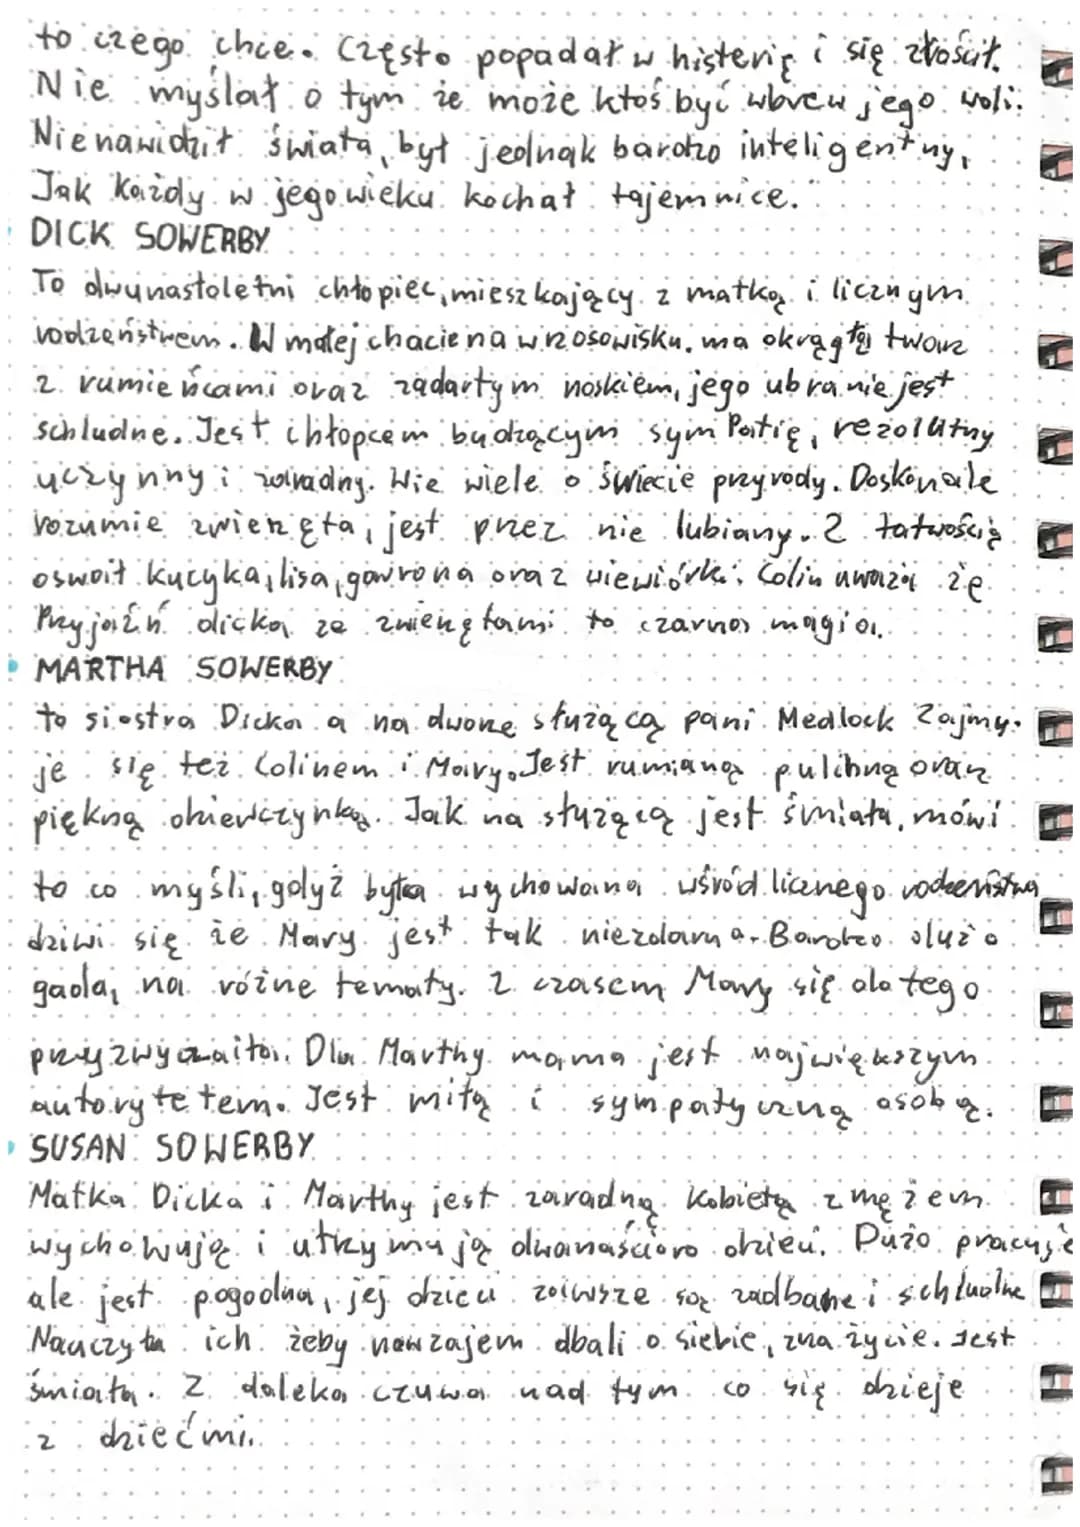 to czego chce. Często popadał w histerię i się złościł.
Nie myślał o tym że może ktoś być wbrew jego woli.
Nienawidził świata, był jednak bardzo inteligentny,
Jak każdy w jego wieku kochał tajemnice.
DICK SOWERBY
To dwunastoletni chłopiec, mieszkający z matką i licznym
rodzeństwem. W małej chacie na wrzosowisku. ma okrągłą twarz
z rumieńcami oraz zadartym noskiem, jego ubranie jest
schludne. Jest chłopcem budzącym symPatię, rezolutny
uczynny i zaradny. Wie wiele o świecie przyrody. Doskonale
rozumie zwierzęta, jest przez nie lubiany. Z łatwością
oswoił kucyka, lisa, gawrona oraz wiewiórki. Colin uważa że
Przyjaźń dicka ze zwierzętami to czarna magia.
MARTHA SOWERBY
to siostra Dicka a na dworze służącą pani Medlock Zajmu-
je się też Colinem i Mary. Jest rumianą pulchną oraz
piękną dziewczynką. Jak na służącą jest śmiała, mówi
to co myśli, gdyż była wychowana wśród licznego rodzeństwa
dziwi się że Mary jest tak niezdarna. Bardzo dużo
gada, na różne tematy. Z czasem Mary się do tego
przyzwyczaiła. Dla Marthy mama jest największym
autorytetem. Jest miłą i sympatyczną osobą.
SUSAN SOWERBY
Matka Dicka i Marthy jest zaradną kobietą z mężem
wychowują i utrzymują dwanaścioro dzieci. Dużo pracuje
ale jest pogodna, jej dzieci zawsze są zadbane i schludne
Nauczyła ich żeby nawzajem dbali o siebie, zna życie. Jest
śmiała. Z daleka czuwa nad tym co się dzieje
z dziećmi.